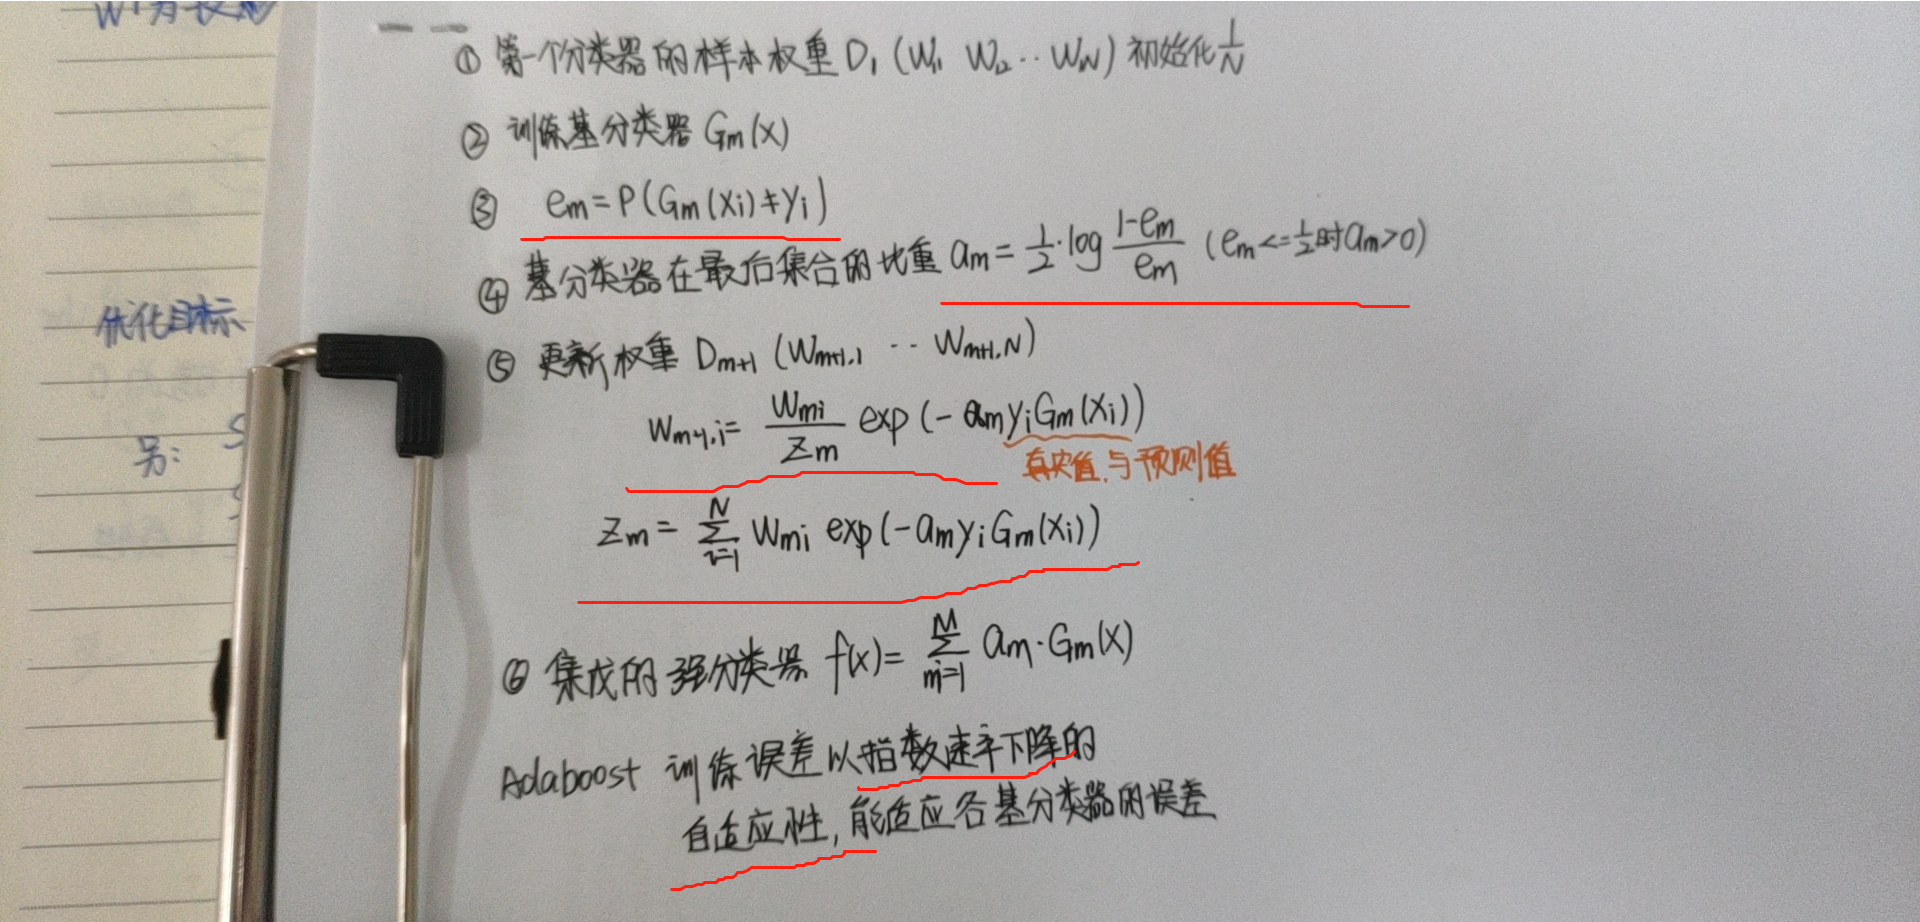 优化目标
另:
① 第一个分类器的样本权重 D₁ (W₁₁ W₁₂ ·· W₁N) 初始化 1/N
② 训练基分类器 Gm(x)
③ em = P(Gm(xi) ≠ yi)
④ 基分类器在最后集合的比重 am = 1/2 · log (1-em)/em (em <= 1/2 时 am>0)
⑤ 更新权重 Dm+1 (Wm+1,1 ·· Wm+1,N)
Wm+1,i = Wmi/Zm exp(-am yi Gm(xi))
真实值与预测值
Zm = Σ_{i=1}^{N} Wmi exp(-am yi Gm(xi))
⑥ 集成的强分类器 f(x) = Σ_{m=1}^{M} am · Gm(x)
Adaboost 训练误差以指数速率下降的
自适应性, 能适应各基分类器的误差